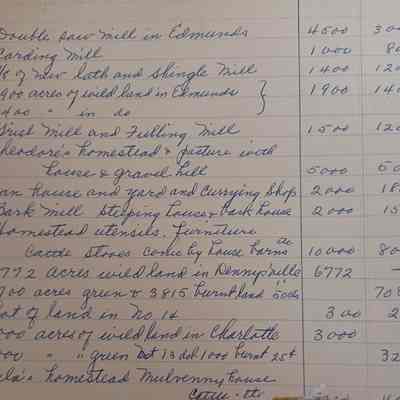 Double Saw Mill in Edmunds 4500 300
Carding Mill 1000 80
/8 of new lath and Shingle Mill 1400 120
900 acres of wild land in Edmunds 1900 140
400 " in do
Grist Mill and Fulling Mill 1500 120
Theodore's homestead & pasture with
house & gravel hill 5000 50
Tan house and yard and Currying Shop 2000 18
Bark Mill Steeping house & bark house 2000 15
Homestead utensils, furniture
Cattle Stores Conic by house barns etc 10000 80
6772 acres wild land in Dennysville 6772 —
700 acres green & 3815 burnt land 50cts 70
Lot of land in No. 14 300 2
000 acres of wild land in Charlotte 3000
000 " " green 13 1000 burnt 25¢ 32
homestead Mulvenny house